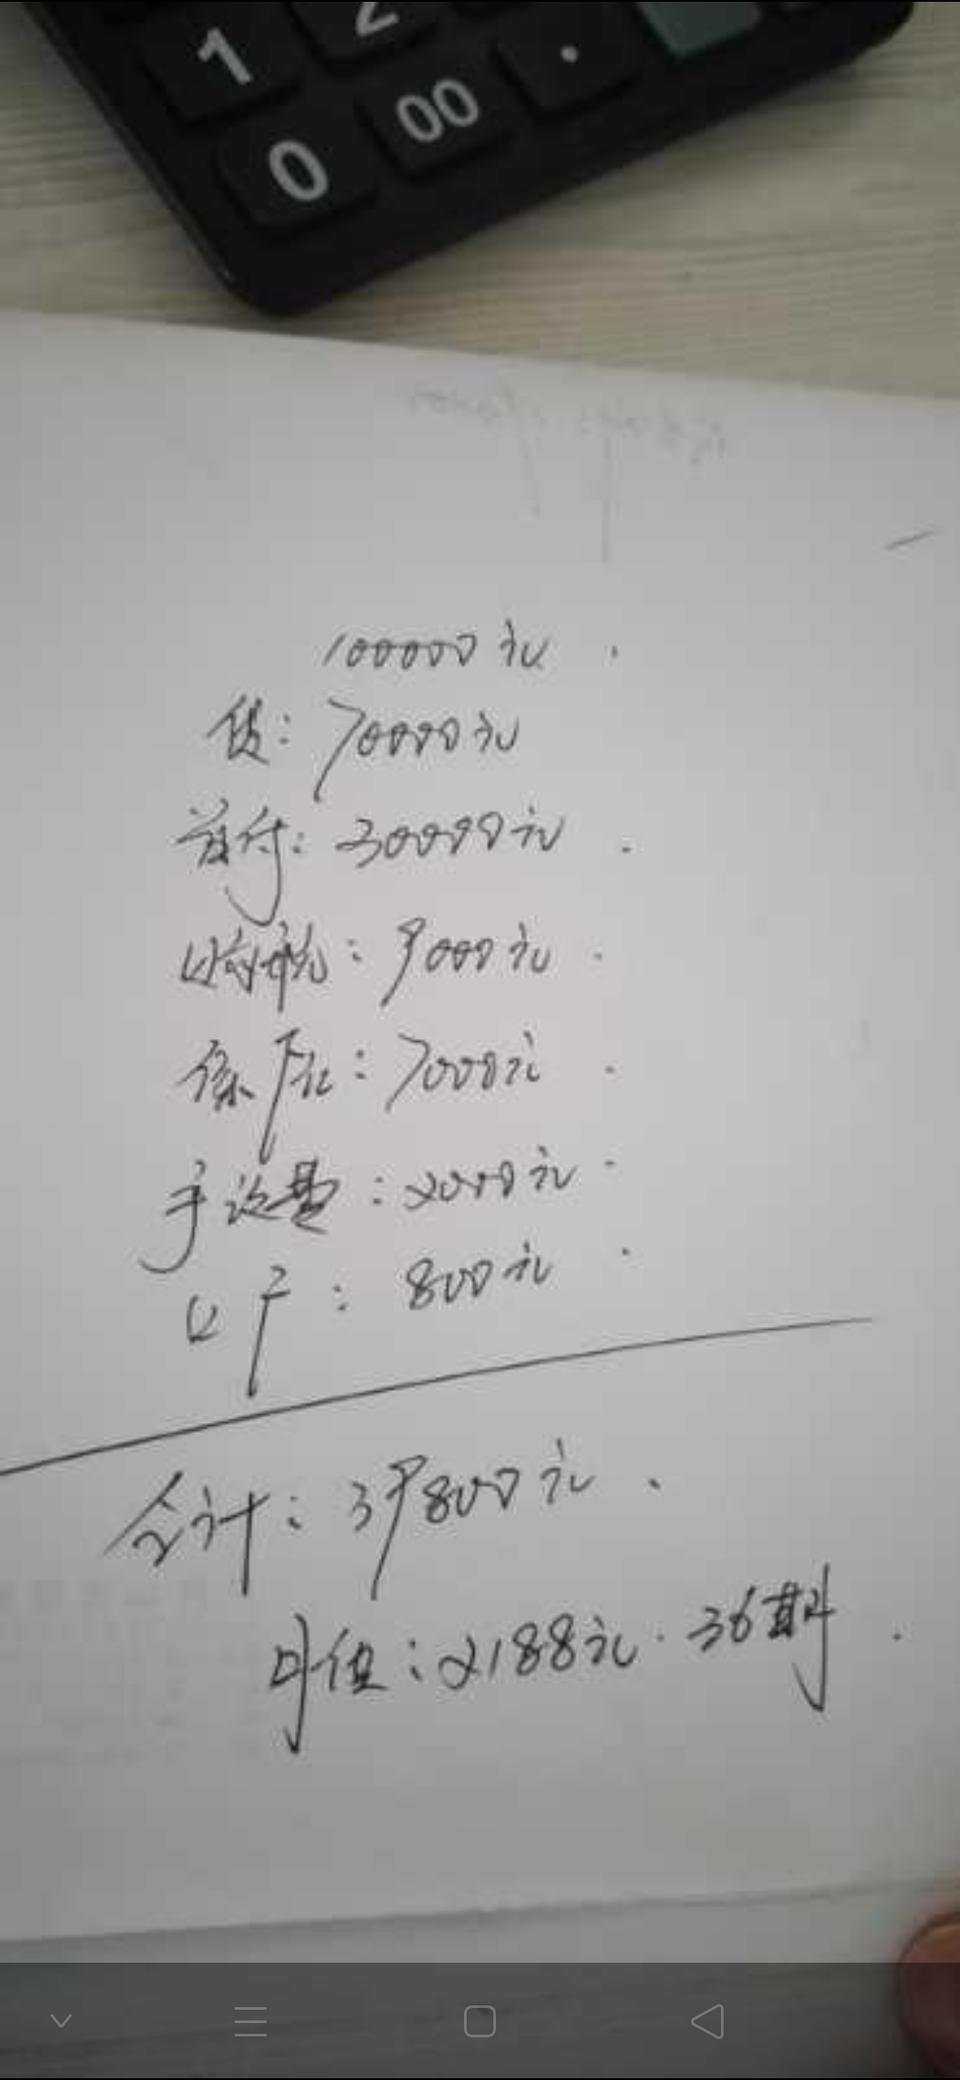 1
2
0
00
.
100000元
贷：70000元
首付：30000元
购税：9000元
保险：7000元
手续费：2000元
上户：800元
合计：39800元
月值：2188元.36期